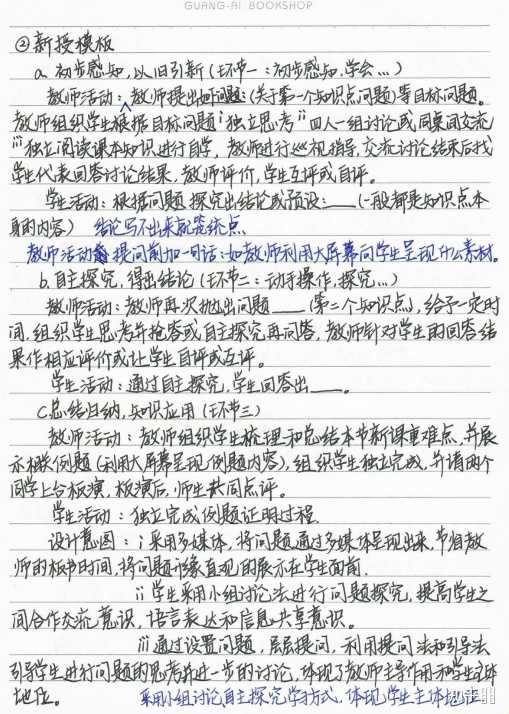 GUANG-AI BOOKSHOP
②新授模板
a. 初步感知,以旧引新(环节一:初步感知,学会...)
教师活动:教师提出问题:(关于第一个知识点问题)等目标问题。
教师组织学生根据目标问题 i 独立思考 ii 四人一组讨论或同桌间交流
iii 独立阅读课本知识进行自学,教师进行巡视指导,交流讨论结束后找
学生代表回答讨论结果,教师评价,学生互评或自评。
学生活动:根据问题探究出结论或预设:___(一般都是知识点本
身的内容) 结论写不出来就答疏点
教师活动 提问前加一句话:如教师利用大屏幕向学生呈现什么素材。
b. 自主探究,得出结论(环节二:动手操作,探究...)
教师活动:教师再次抛出问题____(第二个知识点),给予一定时
间,组织学生思考并抢答或自主探究再问答,教师针对学生的回答结
果作相应评价或让学生自评或互评。
学生活动:通过自主探究,学生回答出____。
C.总结归纳,知识应用(环节三)
教师活动:教师组织学生梳理和总结本节新课重难点,并展
示相关例题(利用大屏幕呈现例题内容),组织学生独立完成,并请两个
同学上台板演,板演后,师生共同点评。
学生活动:独立完成例题证明过程.
设计意图:i 采用多媒体,将问题通过多媒体呈现出来,节省教
师的板书时间,将问题形象直观的展示在学生面前.
ii 学生采用小组讨论法进行问题探究,提高学生之
间合作交流意识,语言表达和信息共享意识。
iii 通过设置问题,层层提问,利用提问法和引导法
引导学生进行问题的思考并进一步的讨论,体现了教师主导作用和学生主体
地位。 采用小组讨论自主探究学习方式,体现学生主体地位